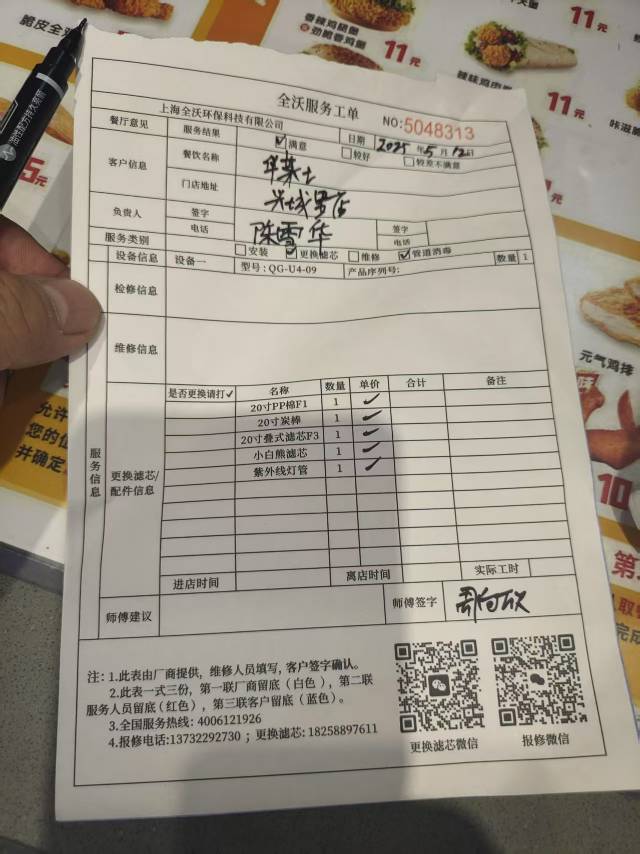 香辣鸡腿堡
劲脆香鸡堡
11元
11元
11元
辣味鸡肉卷
脆皮全鸡
全沃服务工单
NO:5048313
上海全沃环保科技有限公司
日期 2025 年 5 月 12 日
餐厅意见 服务结果 ☑满意 □较好 □较差不满意
客户信息 餐饮名称 华莱士
门店地址
负责人 签字 陈雪华 签字
电话 电话
服务类别 □安装 ☑更换滤芯 □维修 ☑管道消毒
设备信息 设备一 型号: QG-U4-09 产品序列号: 数量 1
检修信息
维修信息
服务信息
更换滤芯/配件信息
是否更换请打✓ 名称 数量 单价 合计 备注
20寸PP棉F1 1 ✓
20寸炭棒 1 ✓
20寸叠式滤芯F3 1 ✓
小白熊滤芯 1 ✓
紫外线灯管 1 ✓
进店时间 离店时间 实际工时
师傅建议 师傅签字
注: 1.此表由厂商提供, 维修人员填写, 客户签字确认。
2.此表一式三份, 第一联厂商留底 (白色), 第二联
服务人员留底(红色), 第三联客户留底 (蓝色)。
3.全国服务热线: 4006121926
4.报修电话:13732292730 ; 更换滤芯: 18258897611
更换滤芯微信
报修微信
元气鸡排